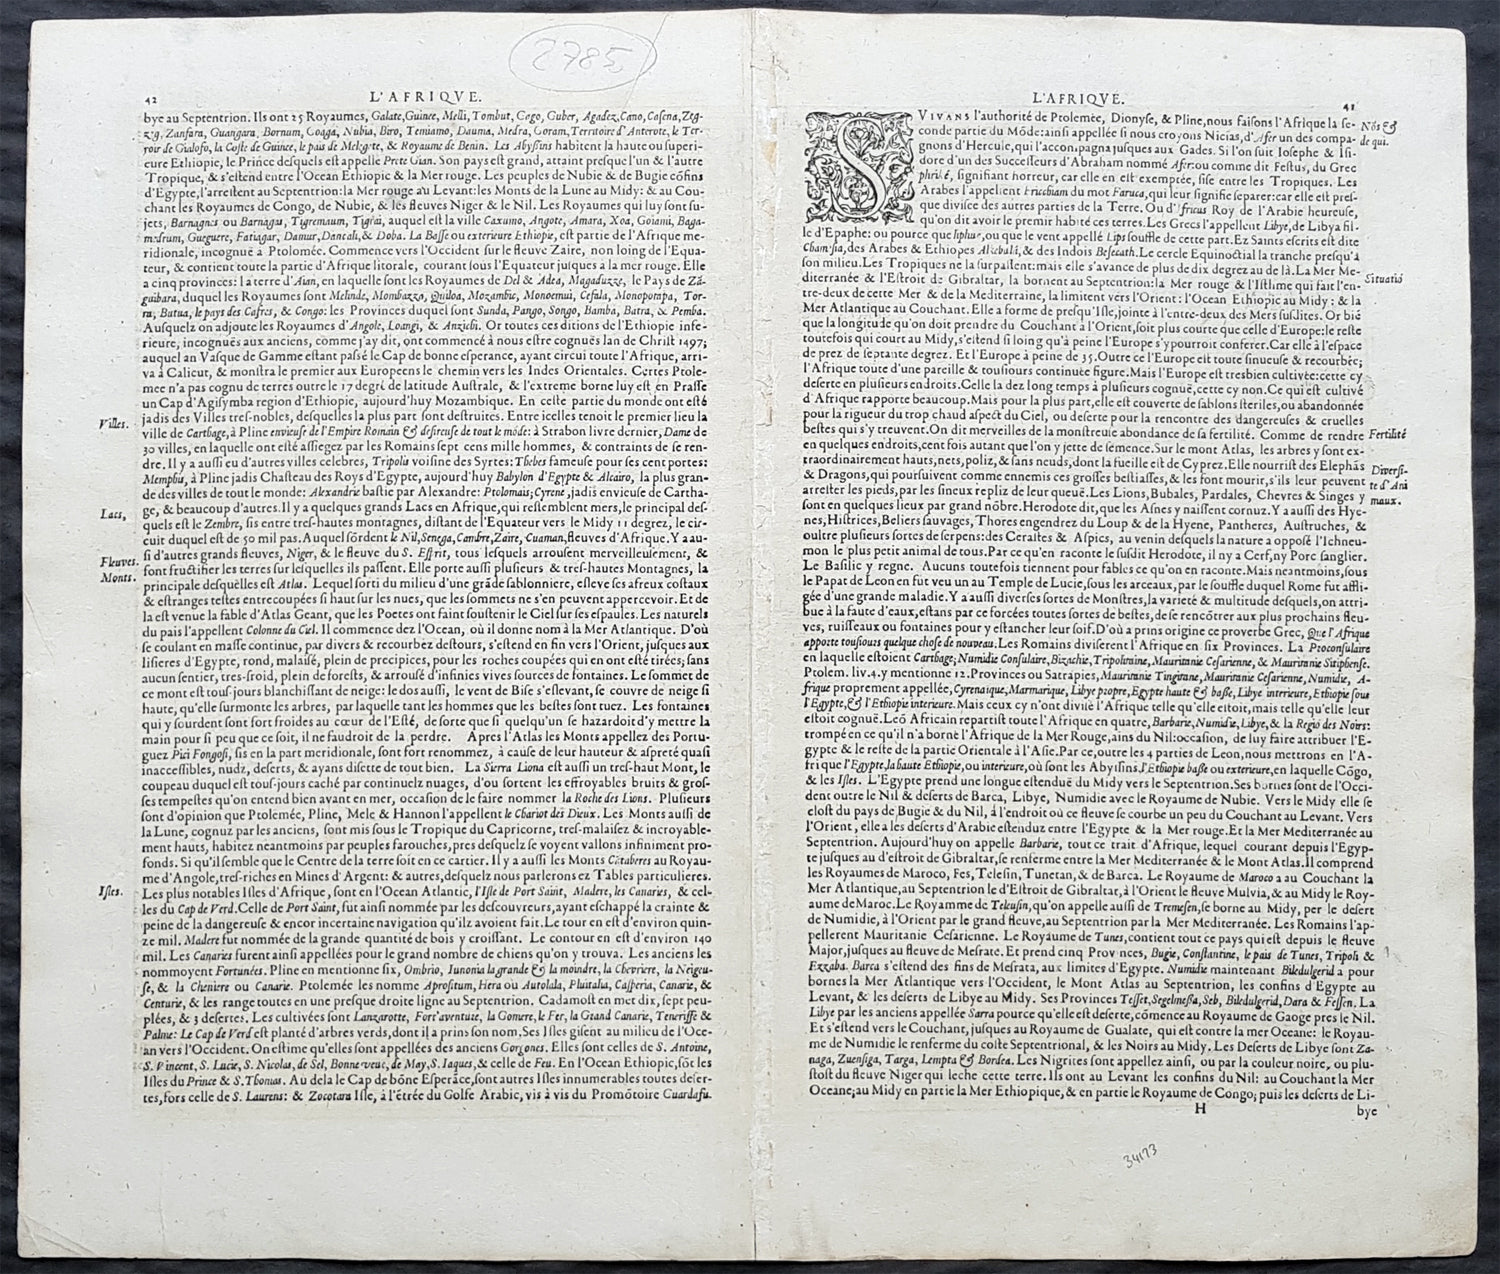 2785
42
L'AFRIQVE.
bye au Septentrion. Ils ont 25 Royaumes, Galate, Guinee, Melli, Tombut, Gago, Guber, Agadez, Cano, Casena, Zeg-
zeg, Zanfara, Guangara, Bornum, Goaga, Nubia, Biro, Temiamo, Dauma, Medra, Goram, Territoire d'Anterote, le Ter-
roir de Gialofo, la Coste de Guinee, le pais de Melegete, & Royaume de Benin. Les Abyssins habitent la haute ou superi-
eure Ethiopie, le Prince desquels est appelle Prete Gian. Son pays est grand, attaint presque l'un & l'autre
Tropique, & s'estend entre l'Ocean Ethiopic & la Mer rouge. Les peuples de Nubie & de Bugie cõfins
d'Egypte, l'arrestent au Septentrion: la Mer rouge au Levant: les Monts de la Lune au Midy: & au Cou-
chant les Royaumes de Congo, de Nubie, & les fleuves Niger & le Nil. Les Royaumes qui luy sont su-
jets, Barnagnes ou Barnagas, Tigremaum, Tigrai, auquel est la ville Caxumo, Angote, Amara, Xoa, Goiami, Baga-
medrum, Gueguere, Fatiagar, Damur, Dancali, & Doba. La Basse ou exterieure Ethiopie, est partie de l'Afrique me-
ridionale, incognuë a Ptolomée. Commence vers l'Occident sur le fleuve Zaire, non loing de l'Equa-
teur, & contient toute la partie d'Afrique litorale, courant sous l'Equateur jusques a la mer rouge. Elle
a cinq provinces: la terre d'Aian, en laquelle sont les Royaumes de Del & Adea, Magaduzze, le Pays de Zã-
guibara, duquel les Royaumes sont Melinde, Mombazza, Quiloa, Mozambic, Monoemui, Cefala, Monopotapa, Tor-
ra, Butua, le pays des Cafres, & Congo: les Provinces duquel sont Sunda, Pango, Songo, Bamba, Batra, & Pemba.
Ausquelz on adjoute les Royaumes d'Angole, Loangi, & Anzichi. Or toutes ces ditions de l'Ethiopie infe-
rieure, incognuës aux anciens, comme j'ay dit, ont commencé à nous estre cognuës l'an de Christ 1497;
auquel an Vasque de Gamme estant passé le Cap de bonne esperance, ayant circui toute l'Afrique, arri-
va à Calicut, & monstra le premier aux Europeens le chemin vers les Indes Orientales. Certes Ptole-
mee n'a pas cognu de terres outre le 17 degré de latitude Australe, & l'extreme borne luy est en Prasse
un Cap d'Agisymba region d'Ethiopie, aujourd'huy Mozambique. En ceste partie du monde ont esté
jadis des Villes tres-nobles, desquelles la plus part sont destruites. Entre icelles tenoit le premier lieu la
Villes.
ville de Carthage, à Pline envieuse de l'Empire Romain & desireuse de tout le mõde: à Strabon livre dernier, Dame de
30 villes, en laquelle ont esté assiegez par les Romains sept cens mille hommes, & contraints de se ren-
dre. Il y a aussi eu d'autres villes celebres, Tripolis voisine des Syrtes: Thebes fameuse pour ses cent portes:
Memphis, à Pline jadis Chasteau des Roys d'Egypte, aujourd'huy Babylon d'Egypte & Alcairo, la plus gran-
de des villes de tout le monde: Alexandrie bastie par Alexandre: Ptolomais; Cyrene, jadis envieuse de Cartha-
ge, & beaucoup d'autres. Il y a quelques grands Lacs en Afrique, qui ressemblent mers, le principal des-
Lacs,
quels est le Zembre, sis entre tres-hautes montagnes, distant de l'Equateur vers le Midy 11 degrez, le cir-
cuit duquel est de 50 mil pas. Auquel sõrdent le Nil, Senega, Cambre, Zaire, Cuaman, fleuves d'Afrique. Y a au-
si d'autres grands fleuves, Niger, & le fleuve du S. Esprit, tous lesquels arrousent merveilleusement, &
Fleuves.
font fructifier les terres sur lesquelles ils passent. Elle porte aussi plusieurs & tres-hautes Montagnes, la
Monts.
principale desquelles est Atlas. Lequel sorti du milieu d'une grãde sablonniere, esleve ses afreux costaux
& estranges testes entrecoupées si haut sur les nues, que les sommets ne s'en peuvent appercevoir. Et de
la est venue la fable d'Atlas Geant, que les Poetes ont faint soustenir le Ciel sur ses espaules. Les naturels
du pais l'appellent Colonne du Ciel. Il commence dez l'Ocean, où il donne nom à la Mer Atlantique. D'où
se coulant en masse continue, par divers & recourbez destours, s'estend en fin vers l'Orient, jusques aux
lisieres d'Egypte, rond, malaisé, plein de precipices, pour les roches coupées qui en ont esté tirées; sans
aucun sentier, tres-froid, plein de forests, & arrousé d'infinies vives sources de fontaines. Le sommet de
ce mont est tous-jours blanchissant de neige: le dos aussi, le vent de Bise s'eslevant, se couvre de neige si
haute, qu'elle surmonte les arbres, par laquelle tant les hommes que les bestes sont tuez. Les fontaines
qui y sourdent sont fort froides au cœur de l'Esté, de sorte que si quelqu'un se hazardoit d'y mettre la
main pour si peu que ce soit, il ne faudroit de la perdre. Apres l'Atlas les Monts appellez des Portu-
guez Pici Fongosi, sis en la part meridionale, sont fort renommez, à cause de leur hauteur & aspreté quasi
inaccessibles, nudz, deserts, & ayans disette de tout bien. La Sierra Liona est aussi un tres-haut Mont, le
coupeau duquel est tous-jours caché par continuelz nuages, d'ou sortent les effroyables bruits & gros-
ses tempestes qu'on entend bien avant en mer, occasion de le faire nommer la Roche des Lions. Plusieurs
sont d'opinion que Ptolemée, Pline, Mele & Hannon l'appellent le Chariot des Dieux. Les Monts aussi de
la Lune, cognuz par les anciens, sont mis sous le Tropique du Capricorne, tres-malaisez & incroyable-
ment hauts, habitez neantmoins par peuples farouches, pres desquelz se voyent vallons infiniment pro-
fonds. Si qu'il semble que le Centre de la terre soit en ce cartier. Il y a aussi les Monts Cãtaberes au Royau-
me d'Angole, tres-riches en Mines d'Argent: & autres, desquelz nous parlerons ez Tables particulieres.
Isles.
Les plus notables Isles d'Afrique, sont en l'Ocean Atlantic, l'Isle de Port Saint, Madere, les Canaries, & cel-
les du Cap de Verd. Celle de Port Saint, fut ainsi nommée par les descouvreurs, ayant eschappé la crainte &
peine de la dangereuse & encor incertaine navigation qu'ilz avoient fait. Le tour en est d'environ quin-
ze mil. Madere fut nommée de la grande quantité de bois y croissant. Le contour en est d'environ 140
mil. Les Canaries furent ainsi appellées pour le grand nombre de chiens qu'on y trouva. Les anciens les
nommoyent Fortunées. Pline en mentionne six, Ombrio, Iunonia la grande & la moindre, la Chevriere, la Neigeu-
se, & la Cheniere ou Canarie. Ptolemée les nomme Aprositum, Hera ou Autolala, Pluitalia, Casperia, Canarie, &
Centurie, & les range toutes en une presque droite ligne au Septentrion. Cadamost en met dix, sept peu-
plées, & 3 desertes. Les cultivées sont Lanzarotte, Fort'aventure, la Gomere, le Fer, la Grand Canarie, Teneriffe &
Palme: Le Cap de Verd est planté d'arbres verds, dont il a prins son nom, Ses Isles gisent au milieu de l'Oce-
an vers l'Occident. On estime qu'elles sont appellées des anciens Gorgones. Elles sont celles de S. Antoine,
S. Vincent, S. Lucie, S. Nicolas, de Sel, Bonne-veue, de May, S. Iaques, & celle de Feu. En l'Ocean Ethiopic, sõt les
Isles du Prince & S. Thomas. Au dela le Cap de bõne Esperãce, sont autres Isles innumerables toutes deser-
tes, fors celle de S. Laurens: & Zocotara Isle, à l'ẽtrée du Golfe Arabic, vis à vis du Promõtoire Guardafu.
L'AFRIQVE.
41
SVIVANS l'authorité de Ptolemée, Dionyse, & Pline, nous faisons l'Afrique la se-
Nõs &
conde partie du Mõde: ainsi appellée si nous croyons Nicias, d'Afer un des compa-
de qui.
gnons d'Hercule, qui l'accompagna jusques aux Gades. Si l'on suit Iosephe & Isi-
dore d'un des Successeurs d'Abraham nommé Afer: ou comme dit Festus, du Grec
phriké, signifiant horreur, car elle en est exemptée, sise entre les Tropiques. Les
Arabes l'appellent Fricchiam du mot Faruca, qui leur signifie separer: car elle est pres-
que divisee des autres parties de la Terre. Ou d'Ifricus Roy de l'Arabie heureuse,
qu'on dit avoir le premir habité ces terres. Les Grecs l'appellent Libye, de Libya fil-
le d'Epaphe: ou pource que liphuo, ou que le vent appellé Lips souffle de cette part. Ez Saints escrits est dite
Chamesia, des Arabes & Ethiopes Alkebalã, & des Indois Besecath. Le cercle Equinoctial la tranche presqu'à
son milieu. Les Tropiques ne la surpassent: mais elle s'avance de plus de dix degrez au de là. La Mer Me-
diterranée & l'Estroit de Gibraltar, la bornent au Septentrion: la Mer rouge & l'Isthme qui fait l'en-
Situatiõ
tre-deux de cette Mer & de la Mediterraine, la limitent vers l'Orient: l'Ocean Ethiopic au Midy: & la
Mer Atlantique au Couchant. Elle a forme de presqu'Isle, jointe à l'entre-deux des Mers susdites. Or biẽ
que la longitude qu'on doit prendre du Couchant à l'Orient, soit plus courte que celle d'Europe: le reste
toutefois qui court au Midy, s'estend si loing qu'à peine l'Europe s'y pourroit conferer. Car elle à l'espace
de prez de septante degrez. Et l'Europe à peine de 35. Outre ce l'Europe est toute sinueuse & recourbée;
l'Afrique toute d'une pareille & tousiours continuée figure. Mais l'Europe est tresbien cultivée: cette cy
deserte en plusieurs endroits. Celle la dez long temps à plusieurs cognuë, cette cy non. Ce qui est cultivé
d'Afrique rapporte beaucoup. Mais pour la plus part, elle est couverte de sablons steriles, ou abandonnée
pour la rigueur du trop chaud aspect du Ciel, ou deserte pour la rencontre des dangereuses & cruelles
bestes qui s'y treuvent. On dit merveilles de la monstreuse abondance de sa fertilité. Comme de rendre
Fertilité
en quelques endroits, cent fois autant que l'on y jette de semence. Sur le mont Atlas, les arbres y sont ex-
traordinairement hauts, nets, poliz, & sans neuds, dont la fueille est de Cyprez. Elle nourrist des Elephãs
Diversi-
& Dragons, qui poursuivent comme ennemis ces grosses bestiasses, & les font mourir, s'ils leur peuvent
te d'Ani
arrester les pieds, par les sineux repliz de leur queuë. Les Lions, Bubales, Pardales, Chevres & Singes y
maux.
sont en quelques lieux par grand nõbre. Herodote dit, que les Asnes y naissent cornuz. Y a aussi des Hye-
nes, Histrices, Beliers sauvages, Thores engendrez du Loup & de la Hyene, Pantheres, Austruches, &
oultre plusieurs sortes de serpens: des Cerastes & Aspics, au venin desquels la nature a opposé l'Ichneu-
mon le plus petit animal de tous. Par ce qu'en raconte le susdit Herodote, il n'y a Cerf, ny Porc sanglier.
Le Basilic y regne. Aucuns toutefois tiennent pour fables ce qu'on en raconte. Mais neantmoins, sous
le Papat de Leon en fut veu un au Temple de Lucie, sous les arceaux, par le souffle duquel Rome fut affli-
gée d'une grande maladie. Y a aussi diverses sortes de Monstres, la varieté & multitude desquels, on attri-
bue à la faute d'eaux, estans par ce forcées toutes sortes de bestes, de se rencõtrer aux plus prochains fleu-
ves, ruisseaux ou fontaines pour y estancher leur soif. D'où a prins origine ce proverbe Grec, Que l'Afrique
apporte tousiours quelque chose de nouveau. Les Romains diviserent l'Afrique en six Provinces. La Proconsulaire
en laquelle estoient Carthage; Numidie Consulaire, Bizachie, Tripolitaine, Mauritanie Cesarienne, & Mauritanie Sitiphense.
Ptolem. liv. 4. y mentionne 12. Provinces ou Satrapies, Mauritanie Tingitane, Mauritanie Cesarienne, Numidie, A-
frique proprement appellée, Cyrenaique, Marmarique, Libye propre, Egypte haute & basse, Libye interieure, Ethiopie sous
l'Egypte, & l'Ethiopie interieure. Mais ceux cy n'ont divisé l'Afrique telle qu'elle estoit, mais telle qu'elle leur
estoit cognuë. Leõ Africain repartist toute l'Afrique en quatre, Barbarie, Numidie, Libye, & la Regiõ des Noirs:
trompé en ce qu'il n'a borné l'Afrique de la Mer Rouge, ains du Nil: occasion, de luy faire attribuer l'E-
gypte & le reste de la partie Orientale à l'Asie. Par ce, outre les 4 parties de Leon, nous mettrons en l'A-
frique l'Egypte, la haute Ethiopie, ou interieure, où sont les Abyssins, l'Ethiopie basse ou exterieure, en laquelle Cõgo,
& les Isles. L'Egypte prend une longue estenduë du Midy vers le Septentrion. Ses bornes sont de l'Occi-
dent outre le Nil & deserts de Barca, Libye, Numidie avec le Royaume de Nubie. Vers le Midy elle se
clost du pays de Bugie & du Nil, à l'endroit où ce fleuve se courbe un peu du Couchant au Levant. Vers
l'Orient, elle a les deserts d'Arabie estenduz entre l'Egypte & la Mer rouge. Et la Mer Mediterranée au
Septentrion. Aujourd'huy on appelle Barbarie, tout ce trait d'Afrique, lequel courant depuis l'Egyp-
te jusques au d'estroit de Gibraltar, se renferme entre la Mer Mediterranée & le Mont Atlas. Il comprend
les Royaumes de Maroco, Fes, Telesin, Tunetan, & de Barca. Le Royaume de Maroco a au Couchant la
Mer Atlantique, au Septentrion le d'Estroit de Gibraltar, à l'Orient le fleuve Mulvia, & au Midy le Roy-
aume de Maroc. Le Royamme de Teleusin, qu'on appelle aussi de Tremesen, se borne au Midy, per le desert
de Numidie, à l'Orient par le grand fleuve, au Septentrion par la Mer Mediterranée. Les Romains l'ap-
pellerent Mauritanie Cesarienne. Le Royäume de Tunes, contient tout ce pays qui est depuis le fleuve
Major, jusques au fleuve de Mesrate. Et prend cinq Provinces, Bugie, Constantine, le pais de Tunes, Tripoli &
Ezzaba. Barca s'estend des fins de Mesrata, aux limites d'Egypte. Numidie maintenant Biledulgerid a pour
bornes la Mer Atlantique vers l'Occident, le Mont Atlas au Septentrion, les confins d'Egypte au
Levant, & les deserts de Libye au Midy. Ses Provinces Tesset, Segelmessa, Seb, Biledulgerid, Dara & Fessen. La
Libye par les anciens appellée Sarra pource qu'elle est deserte, cõmence au Royaume de Gaoge pres le Nil.
Et s'estend vers le Couchant, jusques au Royaume de Gualate, qui est contre la mer Oceane: le Royau-
me de Numidie le renferme du coste Septentrional, & les Noirs au Midy. Les Deserts de Libye sont Za-
naga, Zuensiga, Targa, Lempta & Bordea. Les Nigrites sont appellez ainsi, ou par la couleur noire, ou plu-
stost du fleuve Niger qui leche cette terre. Ils ont au Levant les confins du Nil: au Couchant la Mer
Oceane; au Midy en partie la Mer Ethiopique, & en partie le Royaume de Congo; puis les deserts de Li-
H
bye
34173